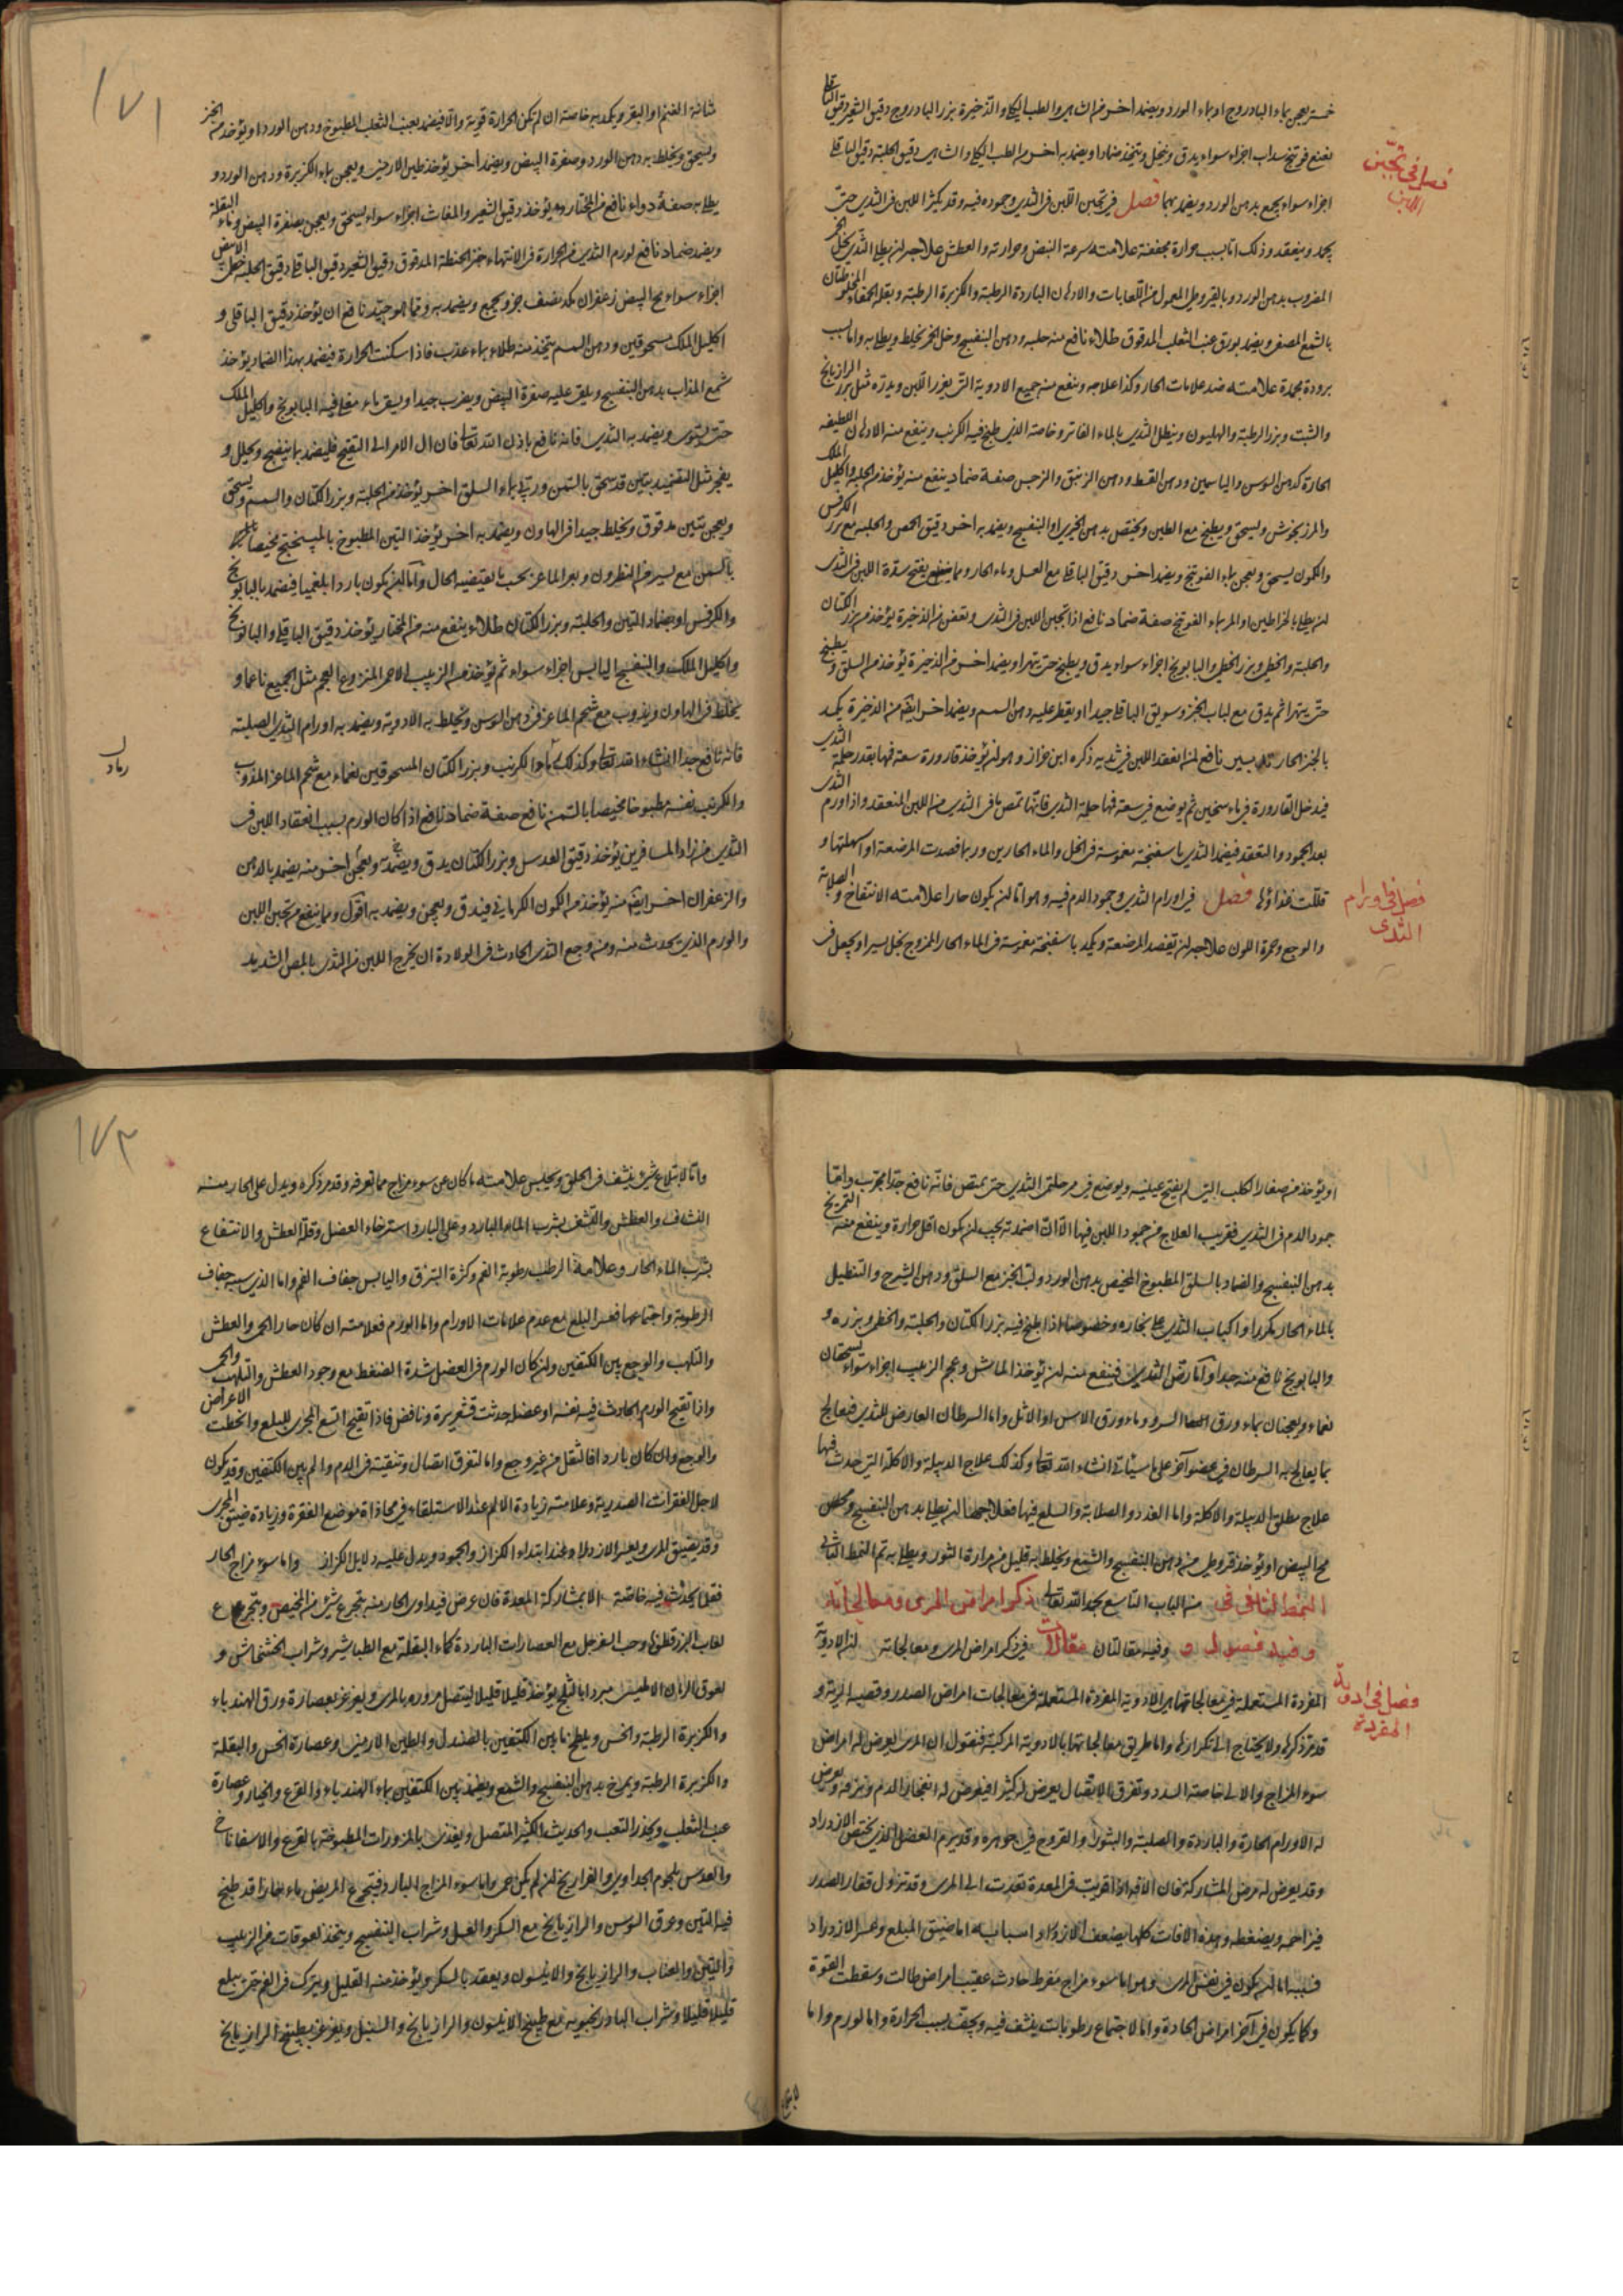 خمسة يعجن بماء البادروج او بماء الورد ويضمد اخر من الشاهى والطب الملكى والذخيرة بزر البادروج دقيق الشعير دقيق الباقلى
نعنع فوتنج سداب اجزاء سواء يدق وينخل ويتخذ ضمادا ويضمد به اخر من الطب الملكى والشاهى دقيق الحلبة دقيق الباقلى
اجزاء سواء يجمع بدهن الورد ويضمد بها فصل فى تجبن اللبن فى الثدى وجموده فيه وقد يكثر اللبن فى الثدى حتى
يجمد وينعقد وذلك اما بسبب حرارة مجففة علامته سرعة النبض وحرارته والعطش علاجه ان يطلى الثدى بخل الخمر
المضروب بدهن الورد وبالقيروطى المعمول من اللعابات والادهان الباردة الرطبة والكزبرة الرطبة وبقلة الحمقاء المخلوطتان
بالشمع المصفى ويضمد بورق عنب الثعلب المدقوق طلاء نافع منه حلبه ودهن البنفسج وخل الخمر يخلط ويطلى به واما بسبب
برودة مجمدة علامته ضد علامات الحار وكذا علاجه وينفع منه جميع الادوية التى يغزر اللبن ويدره مثل بزر الرازيانج
والشبت وبزر الرطبة والهليون وينطل الثدى بالماء الفاتر وخاصة الذى طبخ فيه الكرنب وينفع منه الادهان اللطيفة
الحارة كدهن السوسن والياسمين ودهن القسط ودهن الزنبق والنرجس صفة ضماد ينفع منه يؤخذ من الحلبة واكليل الملك
والمرزنجوش ويسحق ويطبخ مع الطين ويختص بدهن الخيرى او البنفسج ويضمد به اخر دقيق الحمص والحلبة مع بزر الكرفس
والكمون يسحق ويعجن بماء الفوتنج ويضمد اخر دقيق الباقلى مع العسل وماء الحار ومما ينفع بفتح سدة اللبن فى الثدى
ان يطلى بالخراطين او المر بماء الفوتنج صفة ضماد نافع اذا تجبن اللبن فى الثدى وتعفن من الذخيرة يؤخذ من بزر الكتان
والحلبة والخطمى وبزر الخطمى والبابونج اجزاء سواء يدق ويطبخ حتى يتهرا ويضمد اخر من الذخيرة يؤخذ من السلق ويطبخ
حتى يتهرا ثم يدق مع لباب الخبز وسويق الباقلى جيدا ويقطر عليه دهن السمسم ويضمد اخر ايضا من الذخيرة يكمد
بالخبز الحار تدبير نافع لمن انعقد اللبن فى ثديه ذكره ابن خراز وهو ان يؤخذ قارورة سعة فمها بقدر حلمة الثدى
فيدخل القارورة فى ماء سخين ثم يوضع فى سعة فمها حلمة الثدى فانها تمص ما فى الثدى من اللبن المنعقد واذا ورم الثدى
بعد الجمود والتعقد فيضمد الثدى باسفنجة مغموسة فى الخل والماء الحارين وربما فصدت المرضعة او اسهلتها و
قللت غذاؤها فصل فى اورام الثدى وجمود الدم فيه وهو اما ان يكون حارا علامته الانتفاخ والصلابة
والوجع وحمرة اللون علاجه ان تفصد المرضعة ويكمد باسفنجة مغموسة فى الماء الحار الممزوج بخل يسير او يجعل فى
فصل فى تجبن
اللبن
فصل فى اورام
الثدى
١٧١
مثانة الغنم او البقر ويكمد به خاصة ان لم تكن الحرارة قوية والا فيضمد بعنب الثعلب المطبوخ ودهن الورد او يؤخذ من الخبز
ويسحق ويخلط به دهن الورد وصفرة البيض ويضمد اخر يؤخذ طين الارمنى ويعجن بماء الكزبرة ودهن الورد و
يطلى به صفة دواء نافع من المختار وهو يؤخذ دقيق الشعير والمغاث اجزاء سواء يسحق ويعجن بصفرة البيض وماء البقلة
ويضمد ضماد نافع لورم الثدى من الحرارة فى الانتهاء خبز الحنطة المدقوق دقيق الشعير دقيق الباقلى دقيق الحلبة خطمى الابيض
اجزاء سواء مح البيض زعفران مد نصف جزو يجمع ويضمد به ومما هو جيد نافع ان يؤخذ دقيق الباقلى و
اكليل الملك مسحوقين ودهن السمسم يتخذ منه طلاء بماء عذب فاذا سكنت الحرارة فيضمد بهذا الضماد يؤخذ
شمع المذاب بدهن البنفسج ويلقى عليه صفرة البيض ويضرب جيدا ويسقى بماء مغلى فيه البابونج واكليل الملك
حتى يستوى ويضمد به الثدى فانه نافع باذن الله تعالى فان ال الامر الى التقيح فليضمد بما ينضج ويحلل و
يفجر مثل التضميد بتين قد سحق بالسمن ورتب بماء السلق اخر يؤخذ من الحلبة وبزر الكتان والسمسم ويسحق
ويعجن بتين مدقوق ويخلط جيدا فى الهاون ويضمد به اخر يؤخذ التين المطبوخ بالميبختج
بالسمن مع يسير من النطرون وبعر الماعز بحسب ما يقتضيه الحال واما ان يكون باردا بلغميا فيضمد بالبابونج
والكرفس او بضماد التين والحلبة وبزر الكتان طلاء ينفع منه من المختار يؤخذ دقيق الباقلى والبابونج
واكليل الملك والبنفسج اليابس اجزاء سواء ثم يؤخذ من الزبيب الاحمر المنزوع العجم مثل الجميع ناعما و
يخلط فى الهاون ويذوب مع شحم الماعز فى دهن السوسن ويخلط به الادوية ويضمد به اورام الثدى الصلبة
فانه نافع جدا انشاء الله تعالى وكذلك ماء الكرنب وبزر الكتان المسحوقين نعماء مع شحم الماعز المذوب
والكرنب نفسه مطبوخا مخيصا بالسمن نافع صفة ضماد نافع اذا كان الورم بسبب انعقاد اللبن فى
الثدى من زاد المسافرين يؤخذ دقيق العدس وبزر الكتان يدق ويضمد ويعجن اخر منه يضمد بالدهن
والزعفران اخر ايضا منه يؤخذ من الكمون الكرمانى فيدق ويعجن ويضمد به اقول ومما ينفع من تجبن اللبن
والورم الذى يحدث منه ومنه وجع الثدى الحادث فى الولادة ان يخرج اللبن من الثدى بالمص الشديد
رماد
او يؤخذ من صغار الكلب التى لم يفتح عينيه ويوضع فى حلمتى الثدى حتى يمتص فانه نافع جدا مجرب واما
جمود الدم فى الثدى فقريب العلاج من جمود اللبن فيها الا ان اضمدته يجب ان يكون اقل حرارة وينفع منه التمريخ
بدهن البنفسج والضماد بالسلق المطبوخ المخيص بدهن الورد ولب الخبز مع السلق ودهن الشيرج والتنطيل
بالماء الحار مكررا واكباب الثدى على بخاره وخصوصا اذا طبخ فيه بزر الكتان والحلبة والخطمى وبزره و
والبابونج نافع منه جدا واما رض الثديين فينفع منه ان يؤخذ الماش وعجم الزبيب اجزاء سواء يسحقان
نعماء ويعجنان بماء ورق السرو وماء ورق الاس او الاثل واما السرطان العارض للثدى فيعالج
بما يعالج به السرطان فى عضو اخر على ما سياتى انشاء الله تعالى وكذلك علاج الدبيلة والاكلة التى حدث فيها
علاج مطلق الدبيلة والاكلة واما الغدد والصلابة والسلع فيها فعلاجها ان يطلى بدهن البنفسج
مح البيض او يؤخذ قيروطى من دهن البنفسج والشمع ويخلط به قليل من مرارة الثور ويطلى به تم النمط الثانى
النمط الثانى فى من الباب التاسع بحمد الله تعالى ذكر امراض المرى ومعالجاته
وفيه فصول وفيه مقالتان مقالات فى ذكر امراض المرى ومعالجاته ان الادوية
المفردة المستعملة فى معالجاتها هى الادوية المفردة المستعملة فى معالجات امراض الصدر وقصبة الرية و
قد مر ذكرها ولا يحتاج الى تكرارها واما طريق معالجاتها بالادوية المركبة فنقول ان المرى يعرض له امراض
سوء المزاج والالى خاصة السدد وتفرق الاتصال يعرض له كثيرا فيعرض له انفجار الدم ونزفه ويعرض
له الاورام الحارة والباردة والصلبة والبثور والقروح فى جوهره وقد يرم العضل الذى يختص الازدراد
وقد يعرض له مرض المشاركة فان الافة اذا قويت فى المعدة تعدت الى المرى وقد تزول فقار الصدر
فيزاحمه ويضغطه وهذه الافات كلها يضعف الازدراد واسبابه اما ضيق المبلع وعسر الازدراد
فسببه اما ان يكون فى نفس المرى وهو اما سوء مزاج مفرط حادث عقيب امراض طالت وسقطت القوة
وكما يكون فى اخر امراض الحادة واما لاجتماع رطوبات ينشف فيه ويجف بسبب الحرارة واما لورم واما
فصل فى ادوية
المفردة
١٧٢
واما لابتلاع شئ ينشف فى الحلق ويحبس علامته ما كان عن سوء مزاج مما تعرفه وقد مر ذكره ويدل على الحار منه
النشاف والعطش والتشف بشرب الماء البارد وعلى البارد استرخاء العضل وقلة العطش والانتفاع
بشرب الماء الحار وعلامة الرطب رطوبة الفم وكثرة البزق واليابس جفاف الفم واما الذى سببه جفاف
الرطوبة واجتماعها فعسر البلع مع عدم علامات الاورام واما الورم فعلامته ان كان حارا الحمى والعطش
والتلهب والوجع بين الكتفين وان كان الورم فى العضل شدة الضغط مع وجود العطش والتلهب والحمى
واذا تقيح الورم الحادث فيه نفسه او عضله حدثت قشعريرة ونافض فاذا تقيح اتسع المجرى للبلع وانحطت الاعراض
والوجع وان كان باردا فالثقل من غير وجع واما لتفرق اتصال وتنقيته فى الدم والم بين الكتفين وقد يكون
لاجل الفقرات الصدرية وعلامته زيادة الالم عند الاستلقاء فى محاذاة موضع الفقرة وزيادة ضيق المجرى
وقد يضيق المرى ويعسر الازدراد عند ابتداء الكزاز والجمود ويدل عليه دلايل الكزاز واما سوء مزاج الحار
فقلما يحدث فيه خاصة الا بمشاركة المعدة فان عرض فيداوى الحار منه بتجرع شئ من المخيض وتجرع
لعاب البزر قطونا وحب السفرجل مع العصارات الباردة كماء البقلة مع الطباشير وشراب الخشخاش و
لعوق الرمان الامليسى مبردا بالثلج يؤخذ قليلا قليلا ليتصل مروره بالمرى ويغرغر بعصارة ورق الهندباء
والكزبرة الرطبة والخس ويلطخ ما بين الكتفين بالصندل والطين الارمنى وعصارة الخس والبقلة
والكزبرة الرطبة ويمرخ بدهن البنفسج والشمع ويضمد بين الكتفين بماء الهندباء والقرع والخيار وعصارة
عنب الثعلب ويحذر التعب والحديث الكثير المتصل ويغذى بالمزورات المطبوخة بالقرع والاسفاناخ
والعدس بلحوم الجداوى والفراريج ان لم يكن حمى واما سوء المزاج البارد فيتجرع المريض ماء حارا قد طبخ
فيه التين وعرق السوس والرازيانج مع السكر والعسل وشراب البنفسج ويتخذ لعوقات من الزبيب
والتين والعناب والرازيانج والانيسون ويعقد بالسكر ويؤخذ منه القليل ويترك فى الفم حتى يبلع
قليلا قليلا وشراب البادرنجبويه مع طبيخ الانيسون والرازيانج والسنبل ويغرغر بطبيخ الرازيانج